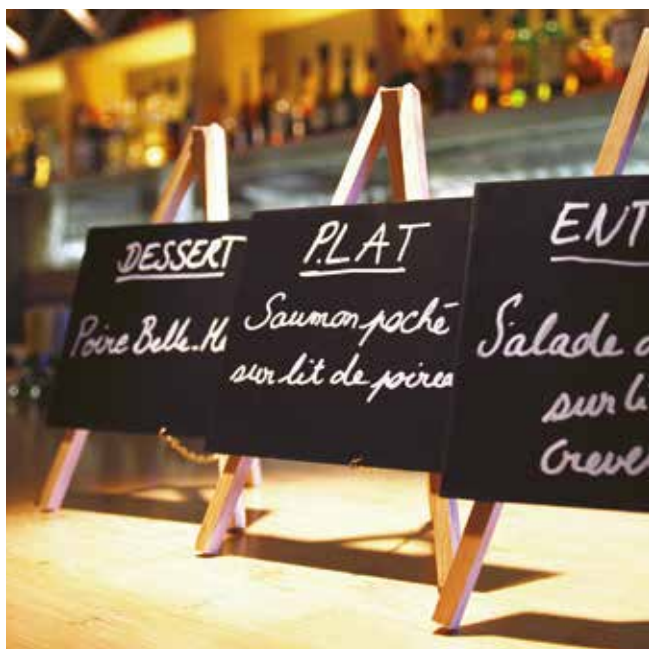 DESSERT
Poire Belle-He
PLAT
Saumon poché
sur lit de poirea
ENT
Salade d
sur li
creve